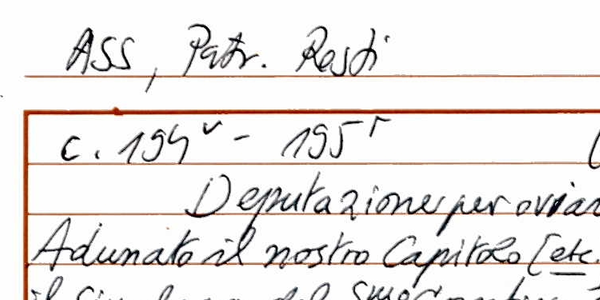 ASS, Patr. Resti
c. 194v - 195r (
Deputazione per ovviar
Adunato il nostro Capitolo [etc.
il